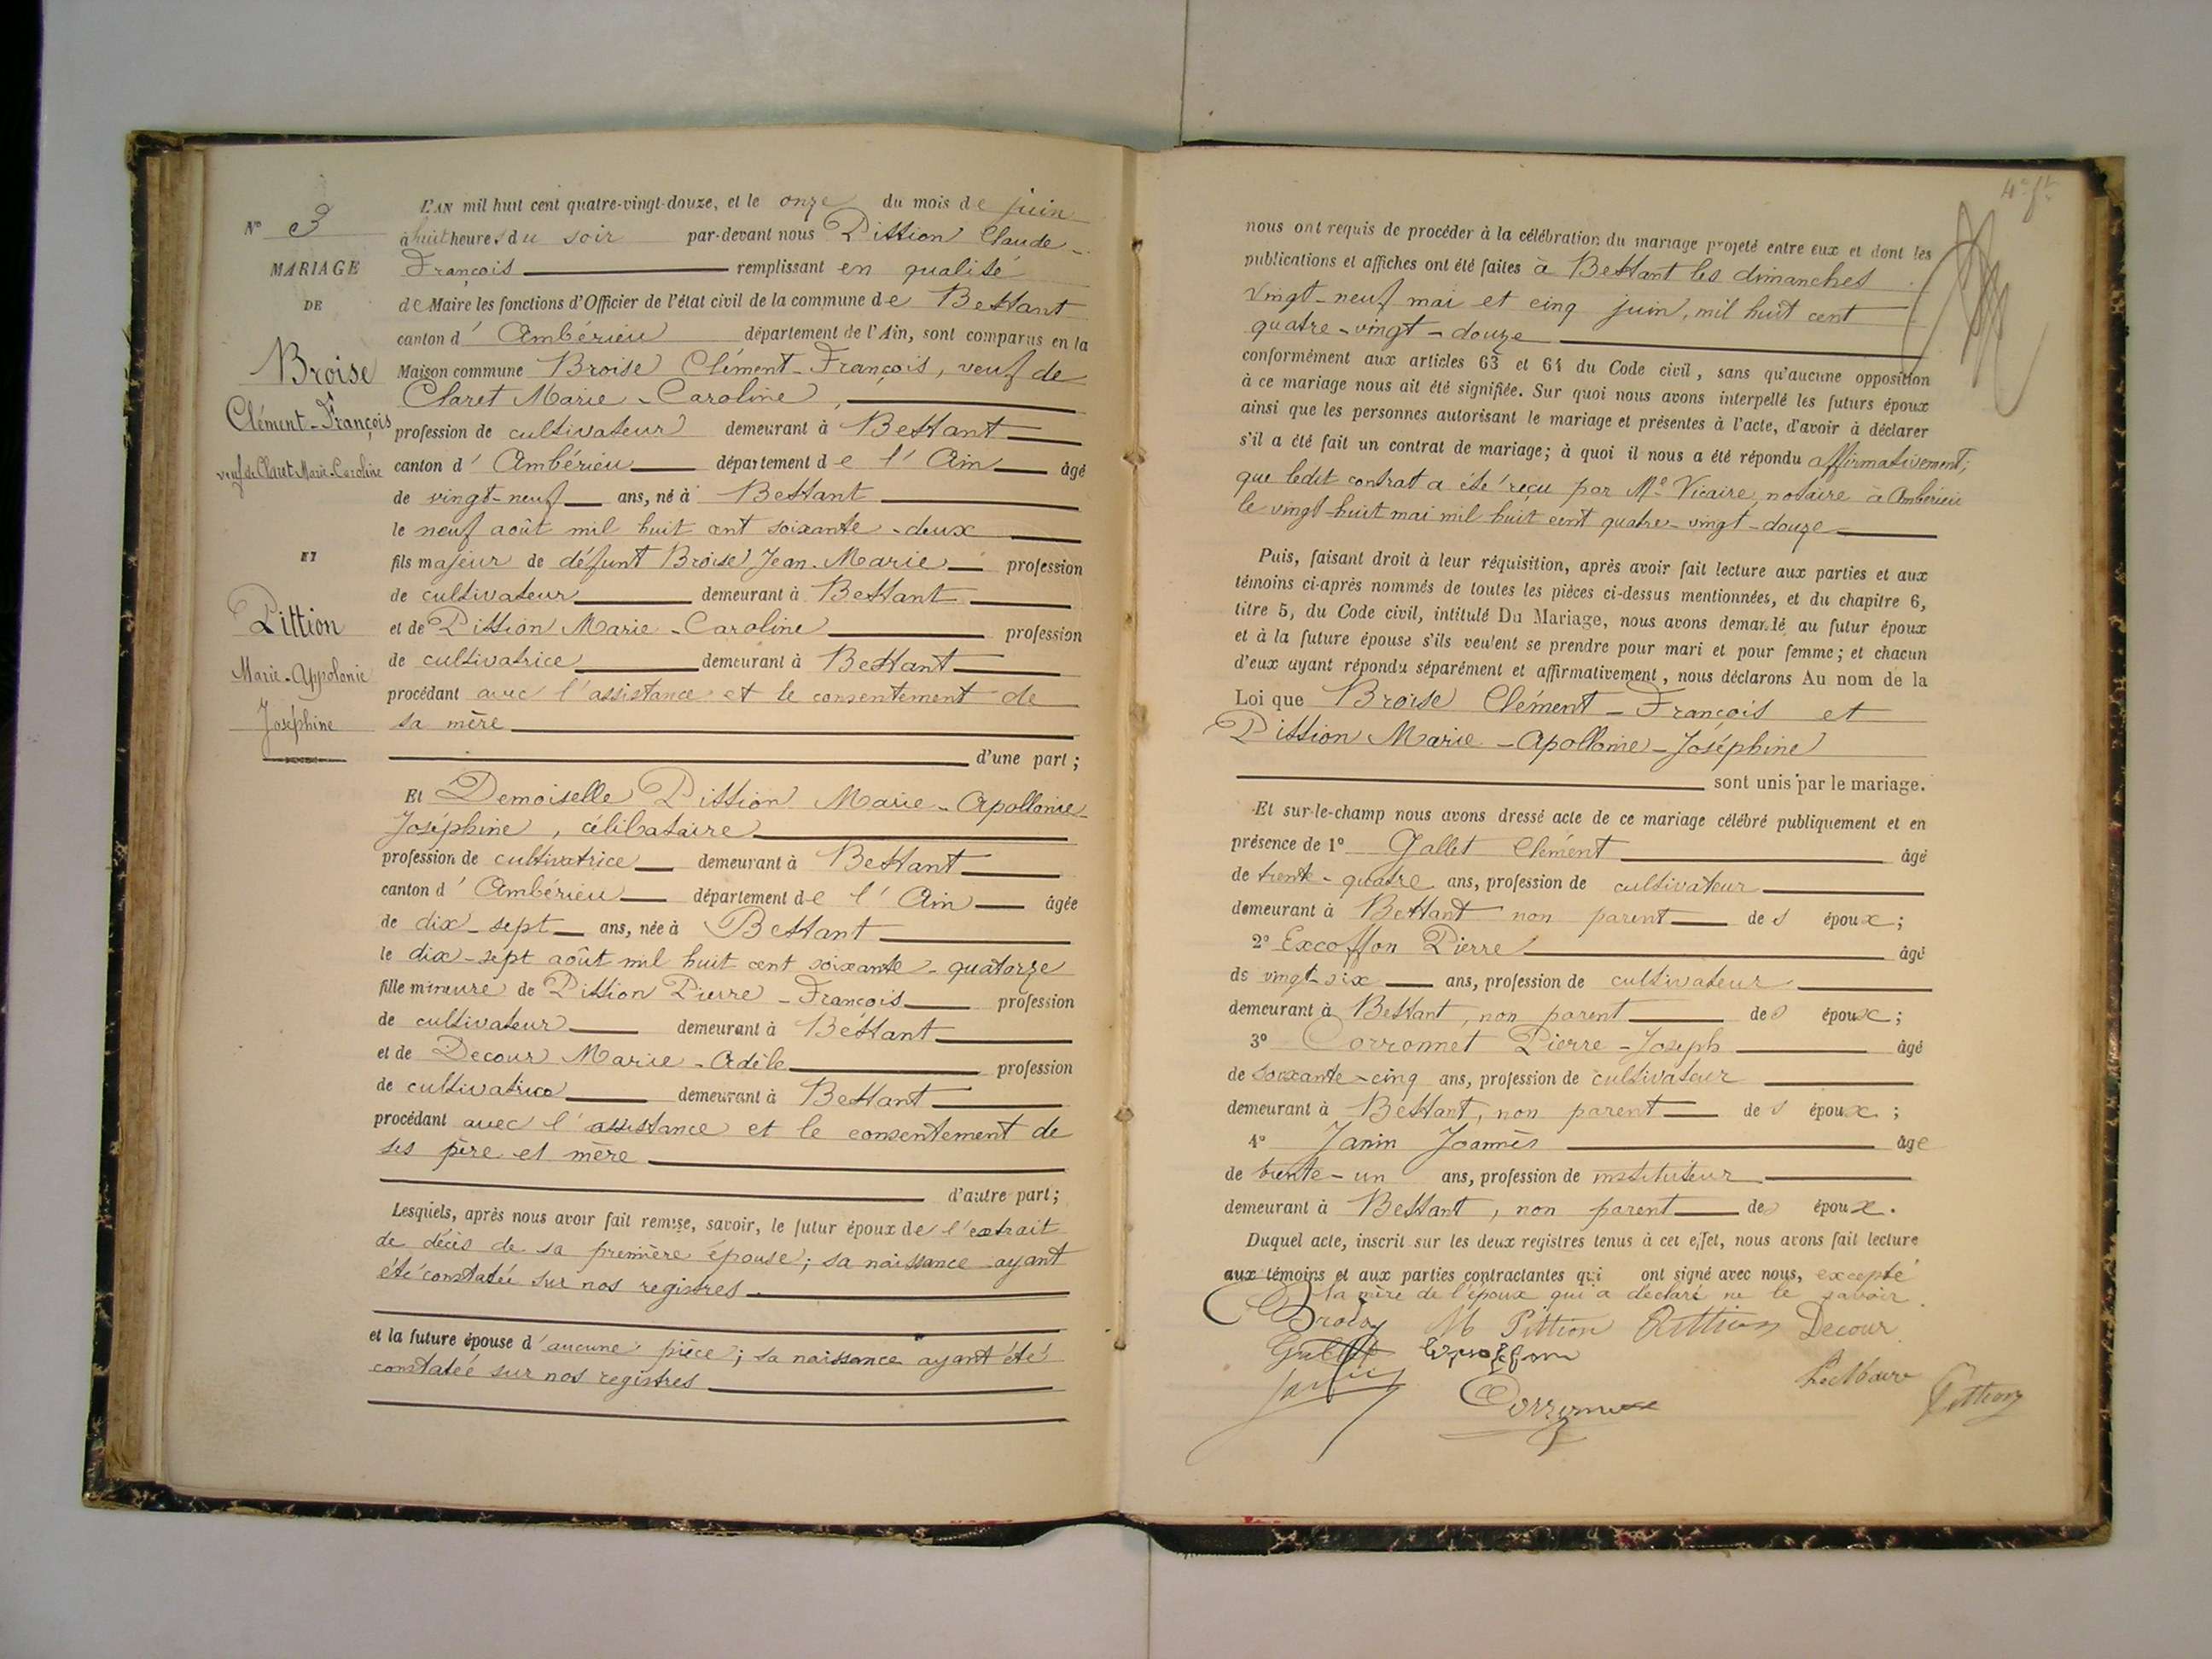 N° 3
MARIAGE
DE
Broise
Clément-François
veuf de Claret Marie-Caroline
ET
Pittion
Marie-Appolonie
Joséphine
L'AN mil huit cent quatre-vingt-douze, et le onze du mois de juin
à huit heures du soir par-devant nous Pittion Claude-
François remplissant en qualité
de Maire les fonctions d'Officier de l'état civil de la commune de Bettant
canton d'Ambérieu département de l'Ain, sont comparus en la
Maison commune Broise Clément-François, veuf de
Claret Marie-Caroline,
profession de cultivateur demeurant à Bettant
canton d'Ambérieu département de l'Ain âgé
de vingt-neuf ans, né à Bettant
le neuf août mil huit cent soixante-deux
fils majeur de défunt Broise Jean-Marie profession
de cultivateur demeurant à Bettant
et de Pittion Marie-Caroline profession
de cultivatrice demeurant à Bettant
procédant avec l'assistance et le consentement de
sa mère
d'une part;
Et Demoiselle Pittion Marie-Apollonie-
Joséphine, célibataire
profession de cultivatrice demeurant à Bettant
canton d'Ambérieu département de l'Ain âgée
de dix-sept ans, née à Bettant
le dix-sept août mil huit cent soixante-quatorze
fille mineure de Pittion Pierre-François profession
de cultivateur demeurant à Bettant
et de Decour Marie-Adèle profession
de cultivatrice demeurant à Bettant
procédant avec l'assistance et le consentement de
ses père et mère
d'autre part;
Lesquels, après nous avoir fait remise, savoir, le futur époux de l'extrait
de décès de sa première épouse; sa naissance ayant
été constatée sur nos registres
et la future épouse d'aucune pièce; sa naissance ayant été
constatée sur nos registres
nous ont requis de procéder à la célébration du mariage projeté entre eux et dont les
publications et affiches ont été faites à Bettant les dimanches
vingt-neuf mai et cinq juin, mil huit cent
quatre-vingt-douze
conformément aux articles 63 et 64 du Code civil, sans qu'aucune opposition
à ce mariage nous ait été signifiée. Sur quoi nous avons interpellé les futurs époux
ainsi que les personnes autorisant le mariage et présentes à l'acte, d'avoir à déclarer
s'il a été fait un contrat de mariage; à quoi il nous a été répondu affirmativement;
que ledit contrat a été reçu par Me Vicaire, notaire à Ambérieu
le vingt-huit mai mil huit cent quatre-vingt-douze
Puis, faisant droit à leur réquisition, après avoir fait lecture aux parties et aux
témoins ci-après nommés de toutes les pièces ci-dessus mentionnées, et du chapitre 6,
titre 5, du Code civil, intitulé Du Mariage, nous avons demandé au futur époux
et à la future épouse s'ils veulent se prendre pour mari et pour femme; et chacun
d'eux ayant répondu séparément et affirmativement, nous déclarons Au nom de la
Loi que Broise Clément-François et
Pittion Marie-Apollonie-Joséphine
sont unis par le mariage.
Et sur-le-champ nous avons dressé acte de ce mariage célébré publiquement et en
présence de 1° Gallet Clément âgé
de trente-quatre ans, profession de cultivateur
demeurant à Bettant non parent des époux;
2° Excoffon Pierre âgé
de vingt-six ans, profession de cultivateur
demeurant à Bettant, non parent des époux;
3° Corronnet Pierre-Joseph âgé
de soixante-cinq ans, profession de cultivateur
demeurant à Bettant, non parent des époux;
4° Janin Joannès âgé
de trente-un ans, profession de instituteur
demeurant à Bettant, non parent des époux.
Duquel acte, inscrit sur les deux registres tenus à cet effet, nous avons fait lecture
aux témoins et aux parties contractantes qui ont signé avec nous, excepté
la mère de l'époux qui a déclaré ne le savoir.
M Pittion Pittion Decour
Le Maire
Pittion